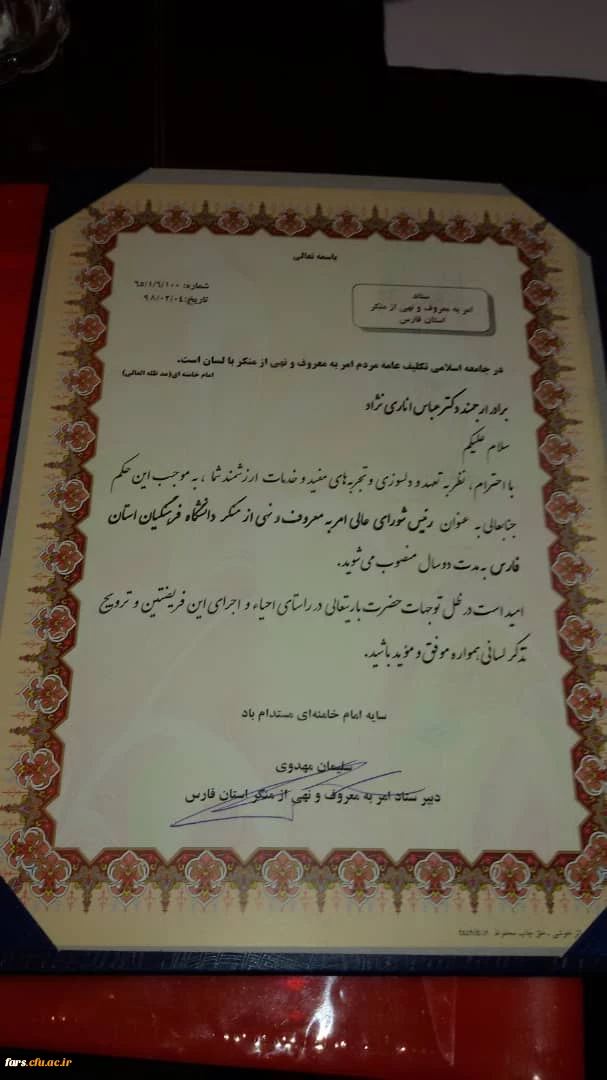 باسمه تعالی
شماره: ۶۵/۱/۶/۱۰۰
تاریخ: ۹۸/۰۲/۰۴
ستاد
امر به معروف و نهی از منکر
استان فارس
در جامعه اسلامی تکلیف عامه مردم امر به معروف و نهی از منکر با لسان است.
امام خامنه ای(مد ظله العالی)
برادر ارجمند دکتر عباس اناری نژاد
سلام علیکم
با احترام، نظر به تعهد و دلسوزی و تجربه های مفید و خدمات ارزشمند شما ، به موجب این حکم
جنابعالی به عنوان رئیس شورای عالی امر به معروف و نهی از منکر دانشگاه فرهنگیان استان
فارس به مدت دو سال منصوب می شوید.
امید است در ظل توجهات حضرت باریتعالی در راستای احیاء و اجرای این فریضتین و ترویج
تذکر لسانی همواره موفق و مؤید باشید.
سایه امام خامنه‌ای مستدام باد
سلیمان مهدوی
دبیر ستاد امر به معروف و نهی از منکر استان فارس
حق چاپ محفوظ
fars.cfu.ac.ir